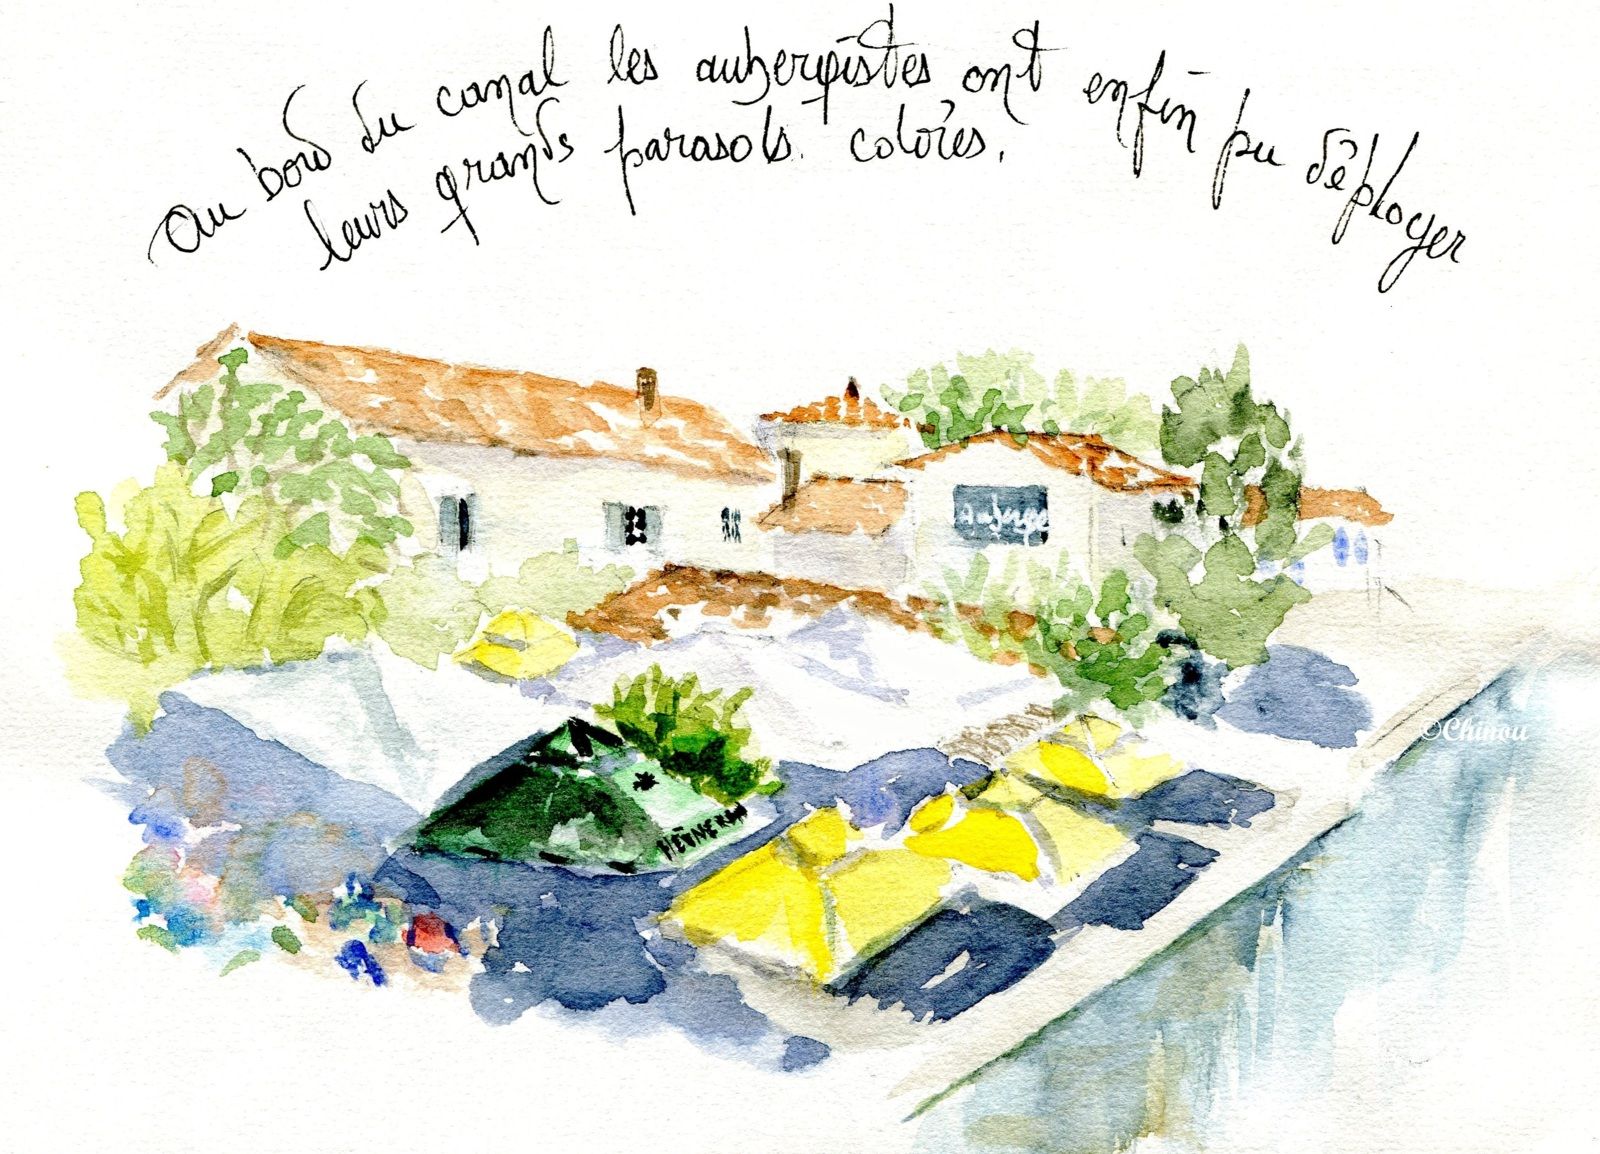 Au bord du canal les aubergistes ont enfin pu déployer
leurs grands parasols colorés.
auberge
HEINEKEN
©Chinou